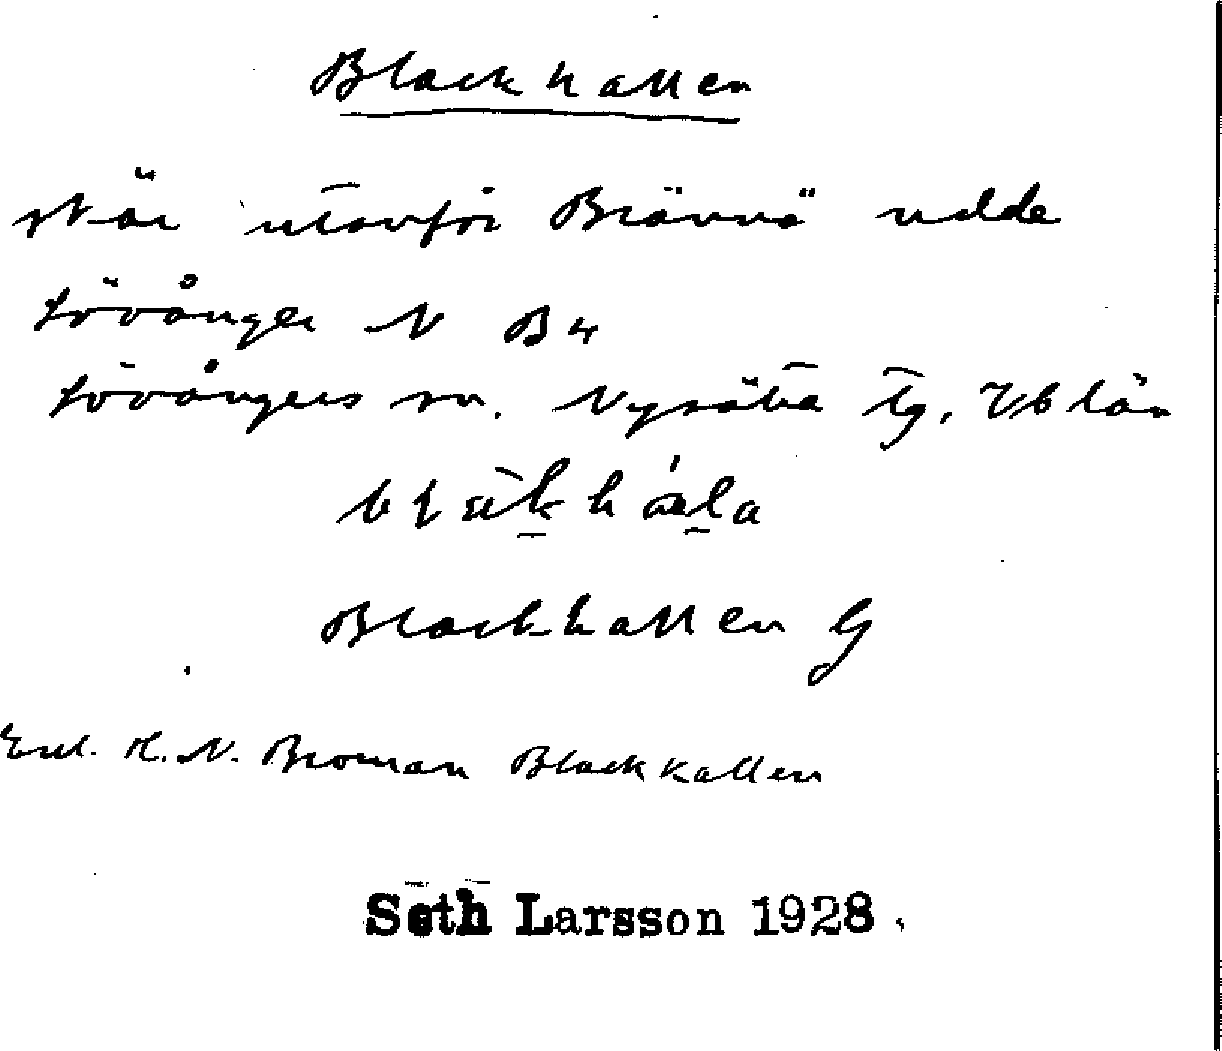 Blackhallen
skär utanför Brännö udde
Lövånger N B4
Lövångers sn. Nysätra tg, Vb län
Blackhallen G
Enl. K. N. Broman Blackkallen
Seth Larsson 1928.